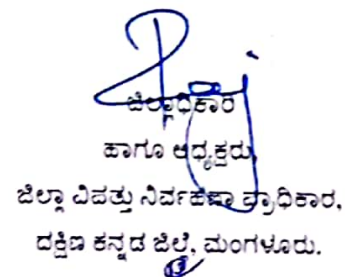 ಜಿಲ್ಲಾಧಿಕಾರಿ
ಹಾಗೂ ಅಧ್ಯಕ್ಷರು,
ಜಿಲ್ಲಾ ವಿಪತ್ತು ನಿರ್ವಹಣಾ ಪ್ರಾಧಿಕಾರ,
ದಕ್ಷಿಣ ಕನ್ನಡ ಜಿಲ್ಲೆ, ಮಂಗಳೂರು.